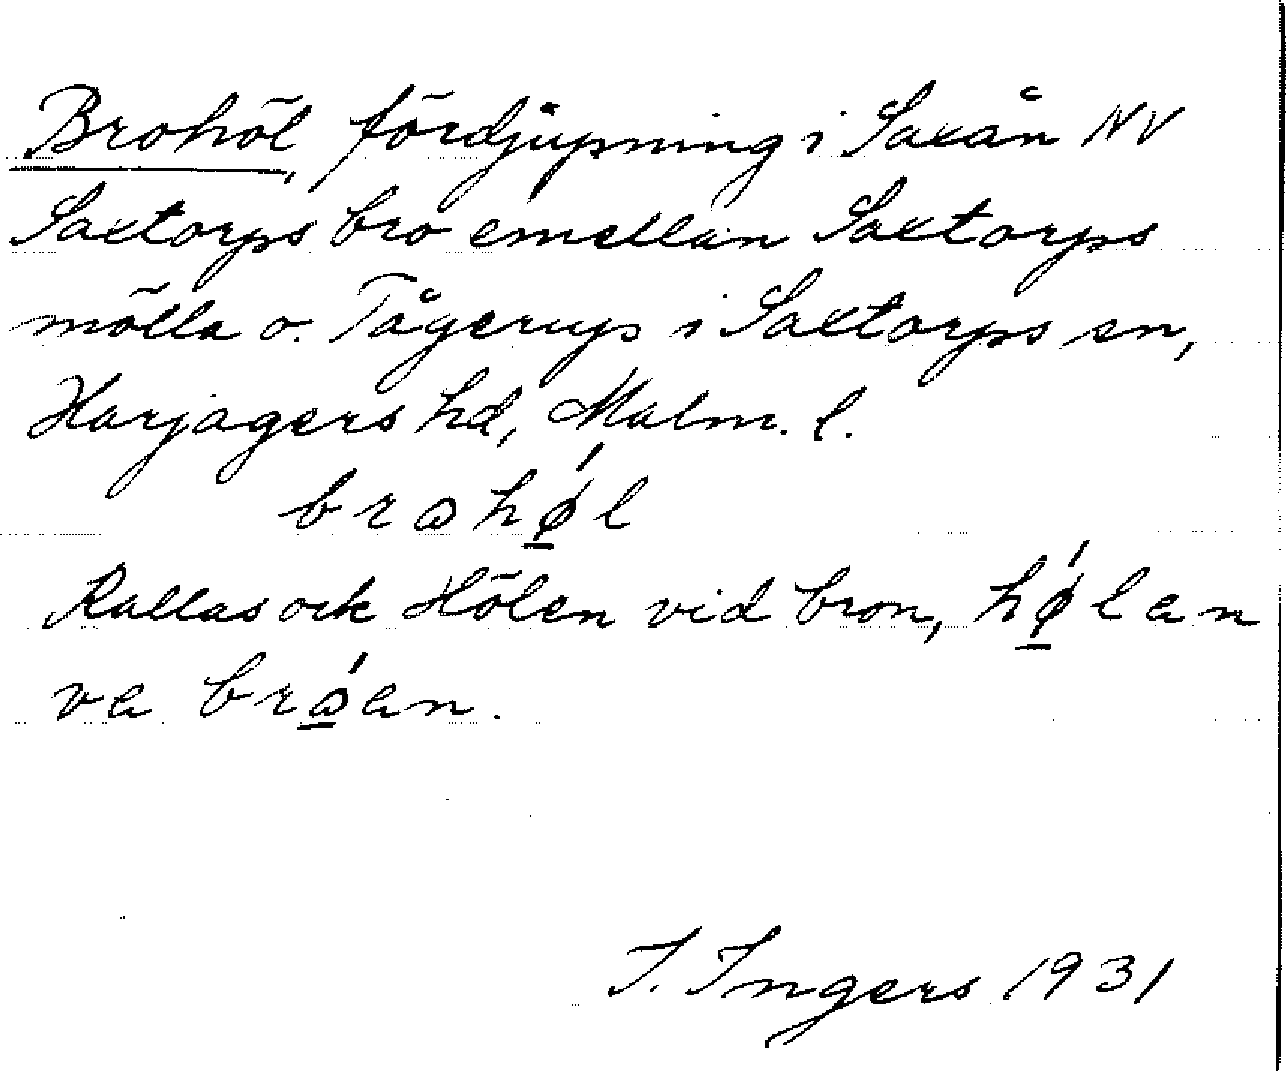 Brohöl, fördjupning i Saxån NV
Saxtorps bro emellan Saxtorps
mölla o. Tågerup i Saxtorps sn,
Harjagers hd, Malm. l.
brohǿ̱l
Kallas ock Hölen vid bron, hǿ̱lən
və bró̱ən.
I. Ingers 1931